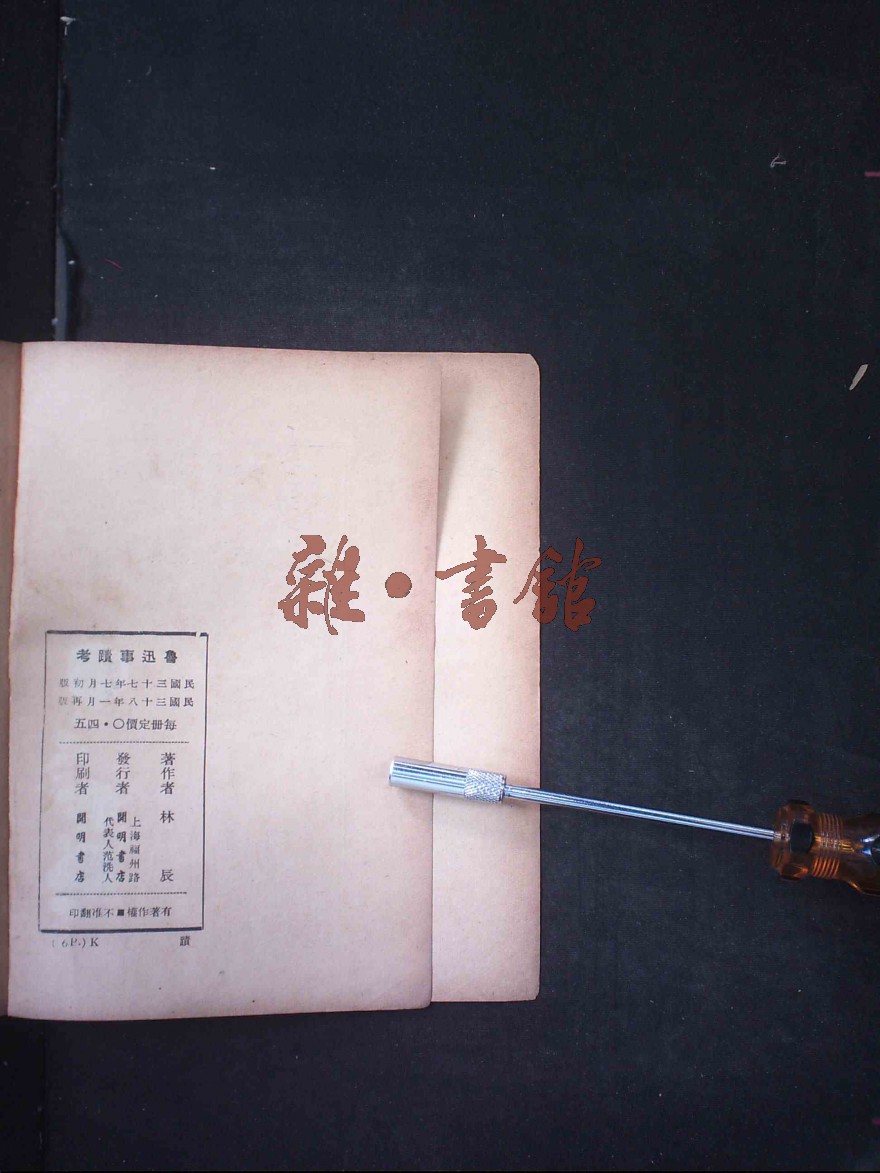 魯迅事蹟考
民國三十七年七月初版
民國三十八年一月再版
每冊定價〇·四五
著作者 林辰
發行者 上海福州路 開明書店 代表人范洗人
印刷者 開明書店
有著作權■不准翻印
蹟 (6P.)K
雜·書館